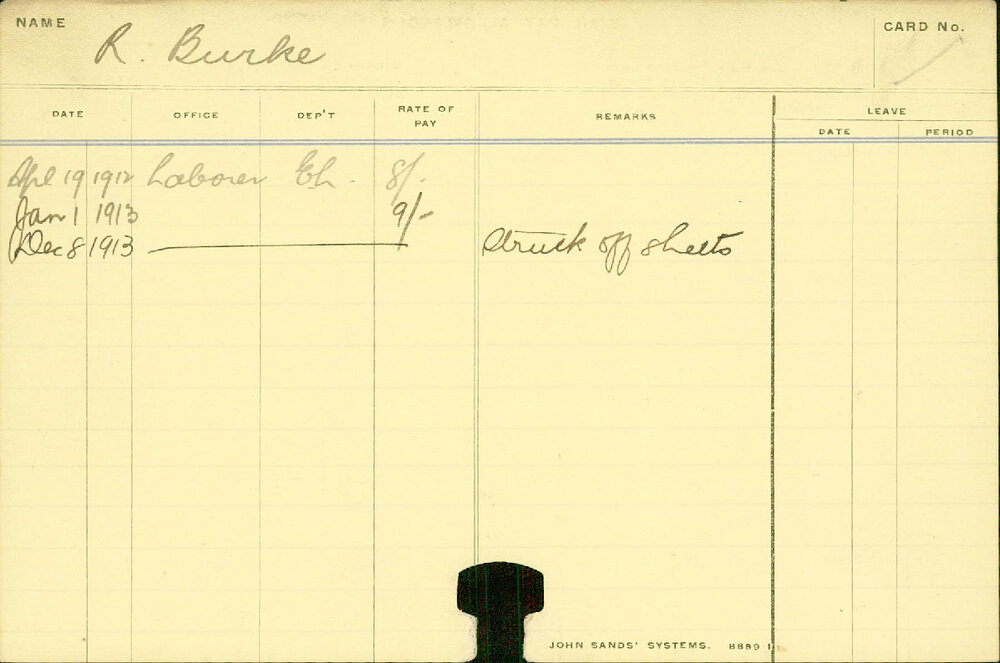 NAME R. Burke CARD No.
DATE OFFICE DEP'T RATE OF PAY REMARKS LEAVE
DATE PERIOD
Apl 19 1912 Laborer Eh. 8/-
Jan 1 1913 9/-
Dec 8 1913 struck off sheets
JOHN SANDS' SYSTEMS. 8689